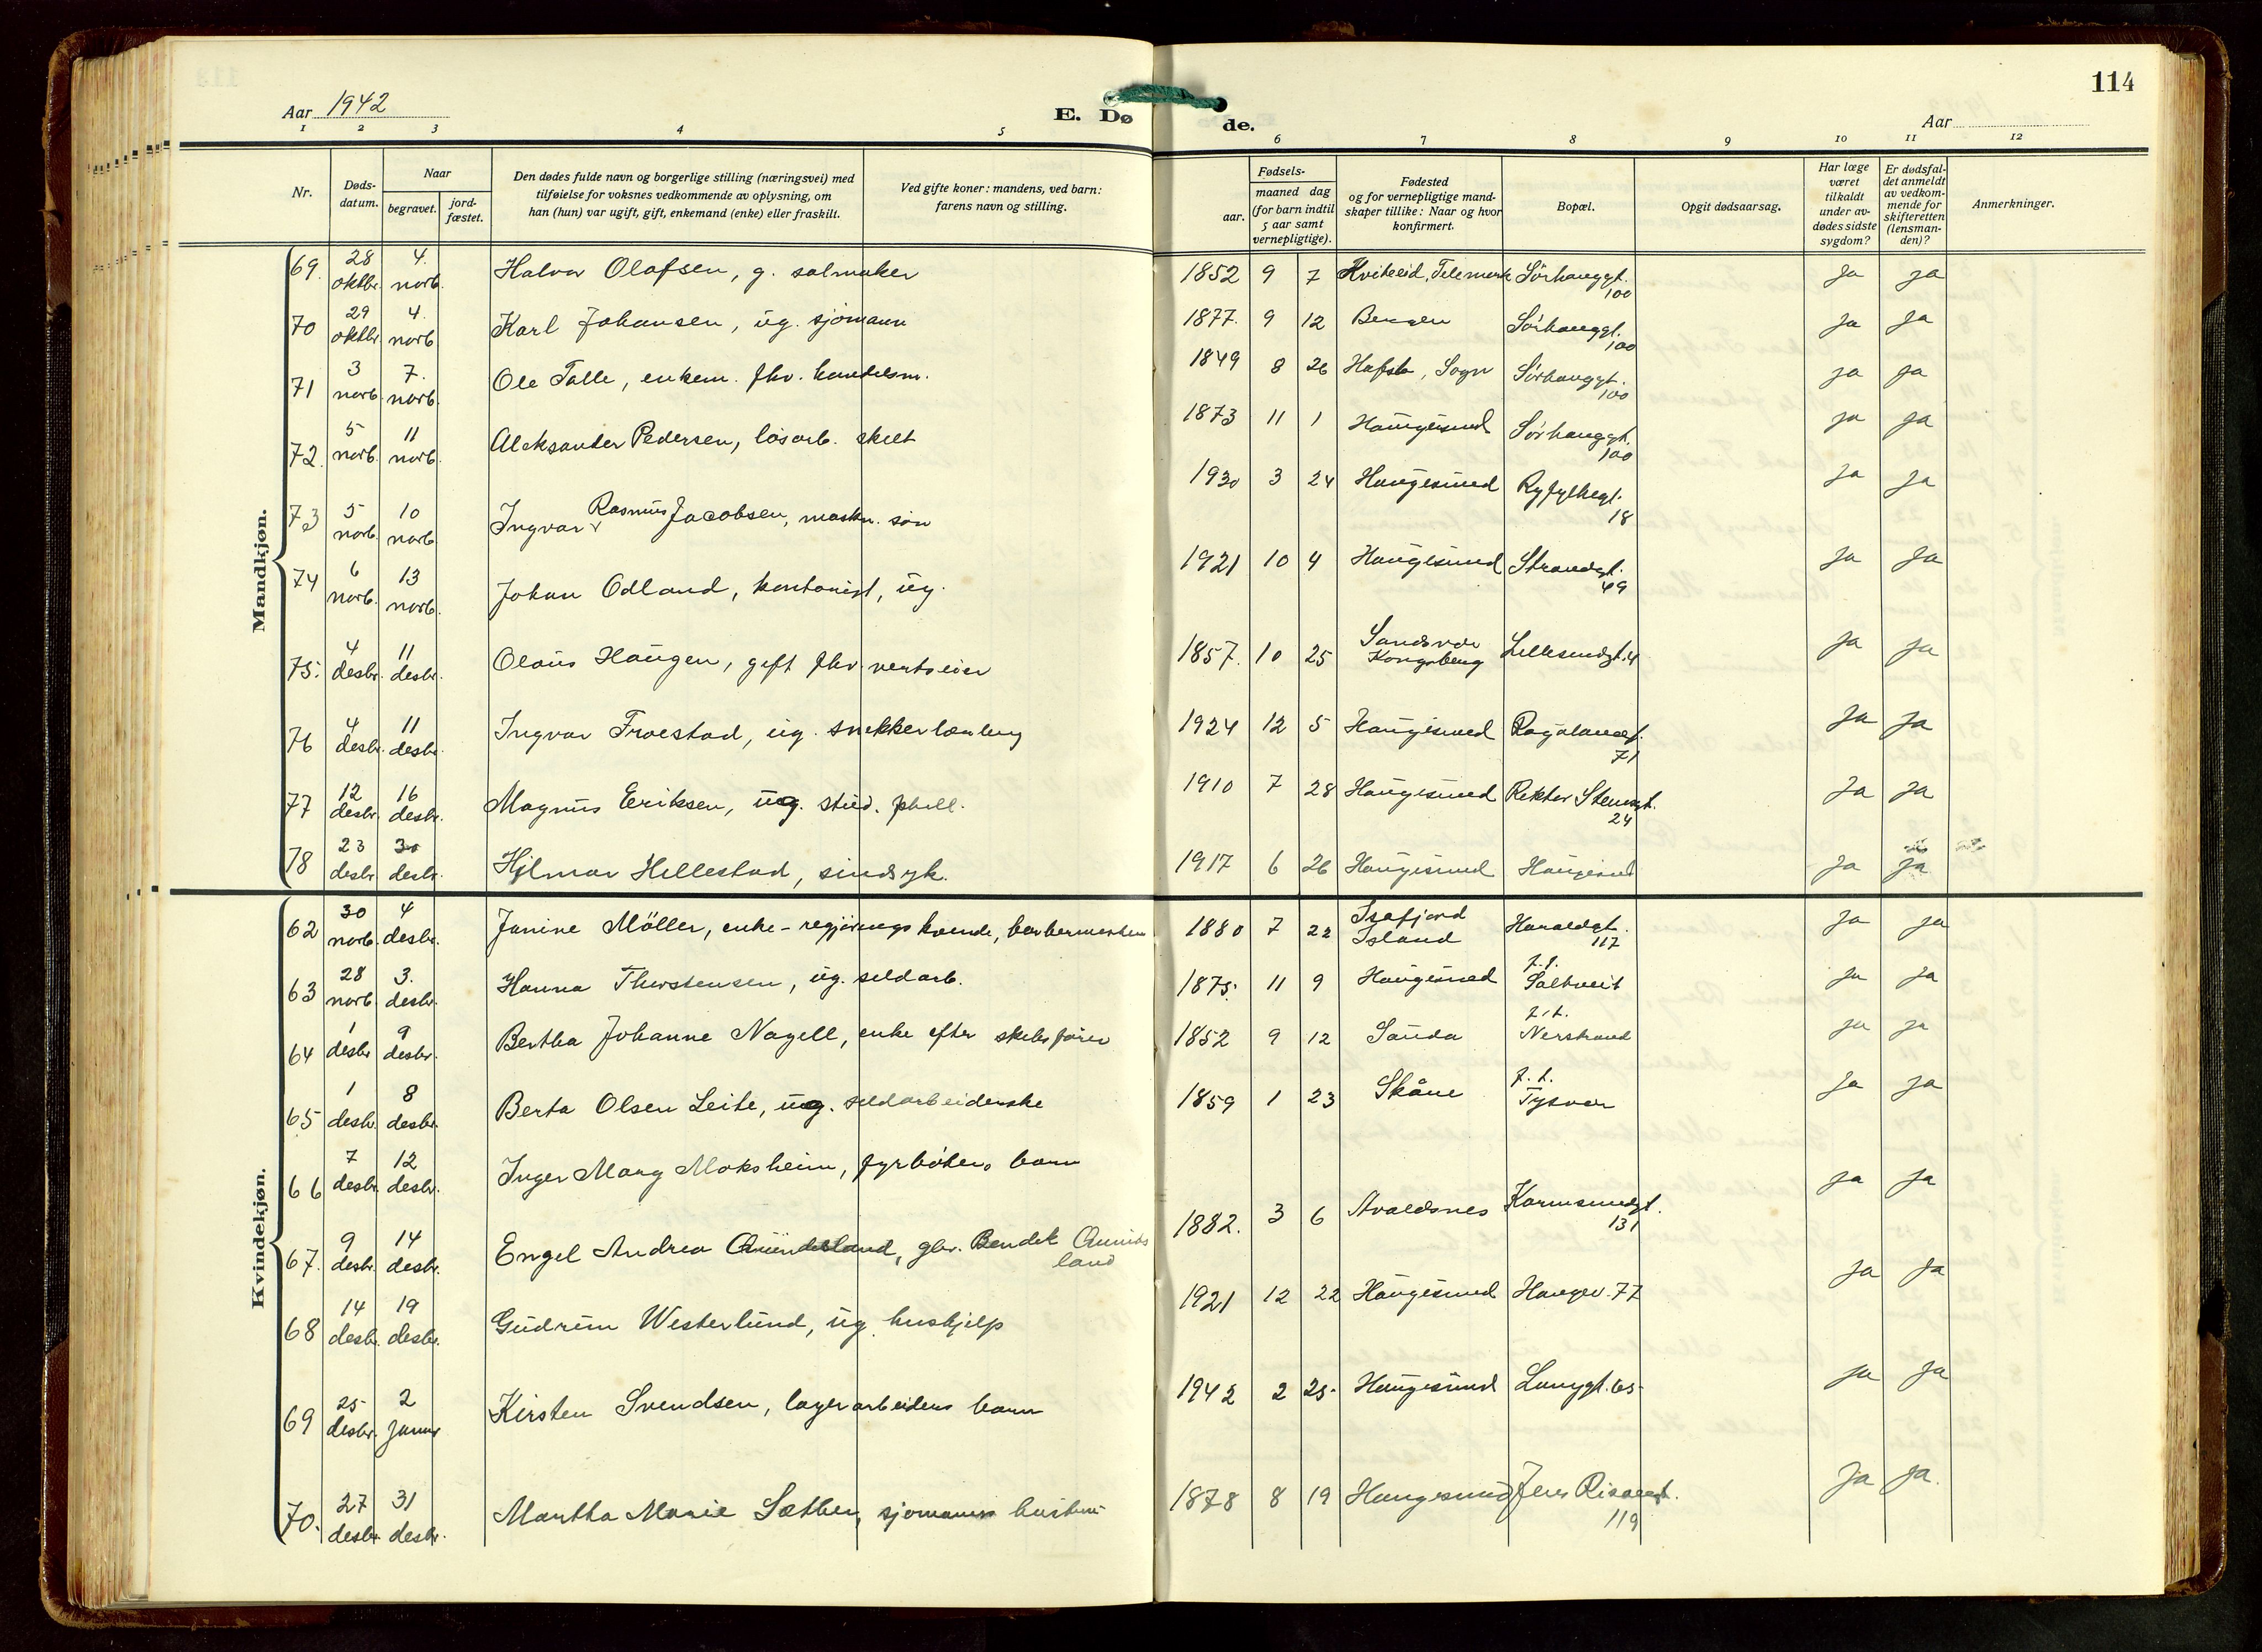 114
Aar 1942
E. Dø
de.
Aar
1 2 3 4 5 6 7 8 9 10 11 12
Nr.
Døds-
datum.
Naar
begravet.
jord-
fæstet.
Den dødes fulde navn og borgerlige stilling (næringsvei) med
tilføielse for voksnes vedkommende av oplysning, om
han (hun) var ugift, gift, enkemand (enke) eller fraskilt.
Ved gifte koner: mandens, ved barn:
farens navn og stilling.
Fødsels-
aar.
maaned dag
(for barn indtil
5 aar samt
vernepligtige).
Fødested
og for vernepligtige mand-
skaper tillike: Naar og hvor
konfirmert.
Bopæl.
Opgit dødsaarsag.
Har læge
været
tilkaldt
under av-
dødes sidste
sygdom?
Er dødsfal-
det anmeldt
av vedkom-
mende for
skifteretten
(lensman-
den)?
Anmerkninger.
Mandkjøn.
69. 28 oktbr. 4. novb. Halvor Olafsen, g. salmaker 1852 9 7 Kviteseid, Telemark Sörhauggt. 100 Ja ja
70 29 oktbr. 4. novb. Karl Johansen, ug. sjømann 1877. 9 12 Bergen Sörhauggt. 100 ja ja
71 3 novb. 7. novb. Ole Talle, enkem. fhv. handelsm. 1849 8 26 Hafslo, Sogn Sörhauggt. 100 ja ja
72. 5 novb. 11 novb. Aleksander Pedersen, løsarb. skilt 1873 11 1 Haugesund Sörhauggt. 100 ja ja
73 5 novb. 10 novb. Ingvar Rasmus Jacobsen, maskn. søn 1930 3 24 Haugesund Ryfylkegt. 18 ja ja
74 6 novb. 13 novb. Johan Odland, kontorist, ug. 1921 10 4 Haugesund Strandgt. 49 ja ja
75. 4 desbr. 11 desbr. Olaus Haugen, gift fhv. vertseier 1857. 10 25 Kongsberg Lillesundgt. 4 ja ja
76 4 desbr. 11 desbr. Ingvar Froestad, ug. snekkerlærling 1924 12 5 Haugesund Rogalandsgt. 71 ja ja
77 12 desbr. 16 desbr. Magnus Eriksen, ug. stud. phill. 1910 7 28 Haugesund Rektor Stensgt. 24 ja ja
78 23 desbr 30 desbr. Hilmar Hellestad, sindsyk. 1917 6 26 Haugesund Haugesund ja ja
Kvindekjøn.
62 30 novb. 4 desbr. Janine Möller, enke - 1880 7 22 Isafjord Island Haraldgt. 117 ja ja
63 28 novb 3. desbr. Hanna Thorstensen, ug. sildarb. 1875. 11 9 Haugesund z.t. Saltveit ja ja
64 1 desbr 9 desbr. Bertha Johanne Nagell, enke efter skibsfører 1852 9 12 Sauda z.t. Nerstrand ja ja
65 1 desbr. 8 desbr. Berta Olsen Leite, ug. sildarbeiderske 1859 1 23 Skåne z.t. Tysvær ja ja
66 7 desbr. 12 desbr. Inger Mary Moksheim, fyrbøters barn ja ja
67. 9 desbr. 14 desbr. Engel Andrea Amundsland, Bendik land 1882. 3 6 Avaldsnes Karmsundgt. 131
68 14 desbr. 19 desbr. Gudrun Westerlund, ug. hushjelp 1921 12 22 Haugesund Haugev. 77 ja ja
69 25 desbr. 2 januar Kirsten Svendsen, lagerarbeiders barn 1942 2 25. Haugesund Langgt. 65 ja ja
70. 27 desbr. 31 desbr. Martha Marie Sæther, sjømanns hustru 1878 8 19 Haugesund Jens Risøesgt. 119 ja ja.